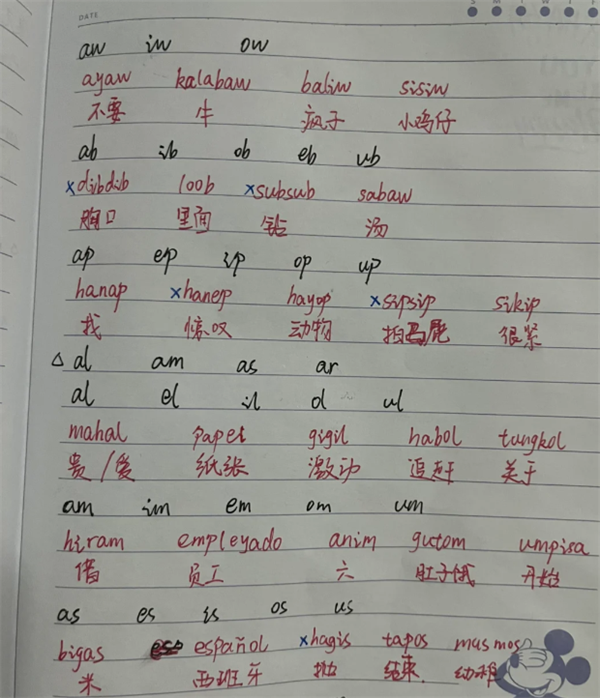 DATE S M T W T F S
aw iw ow
ayaw kalabaw baliw sisiw
不要 牛 疯子 小鸡仔
ab ib ob eb ub
×dibdib loob ×subsub sabaw
胸口 里面 钻 汤
ap ep ip op up
hanap ×hanep hayop ×sipsip sikip
找 惊叹 动物 拍马屁 很紧
△ al am as ar
al el il ol ul
mahal papel gigil habol tungkol
贵/爱 纸张 激动 追赶 关于
am im em om um
hiram empleyado anim gutom umpisa
借 员工 六 肚子饿 开始
as es is os us
bigas español ×hagis tapos musmos
米 西班牙 抛 结束